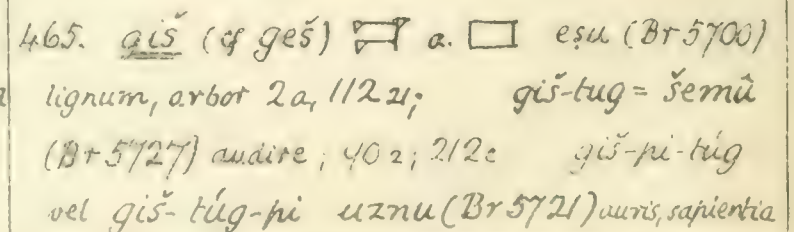 465. giš (cf geš) 𒄑 a. eṣu (Br 5700)
lignum, arbor 2a, 112 21; giš-tug = šemû
(Br 5727) audire; 40 2; 212c giš-pi-túg
vel giš-túg-pi uznu (Br 5721) auris, sapientia